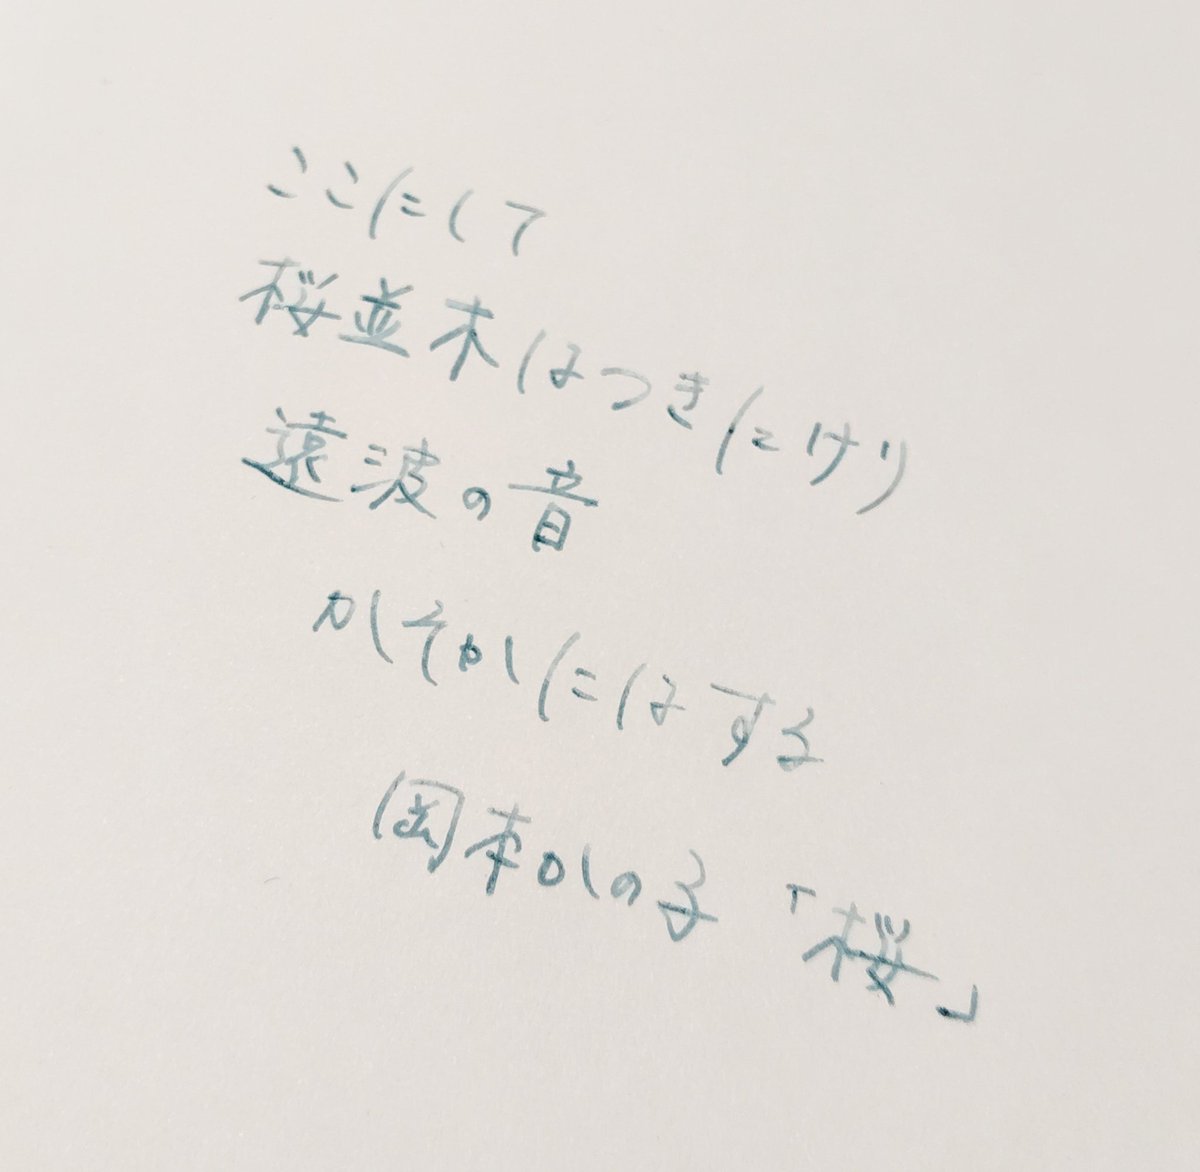 ここにして
桜並木はつきにけり
遠波の音
かそかにはする
岡本かの子「桜」